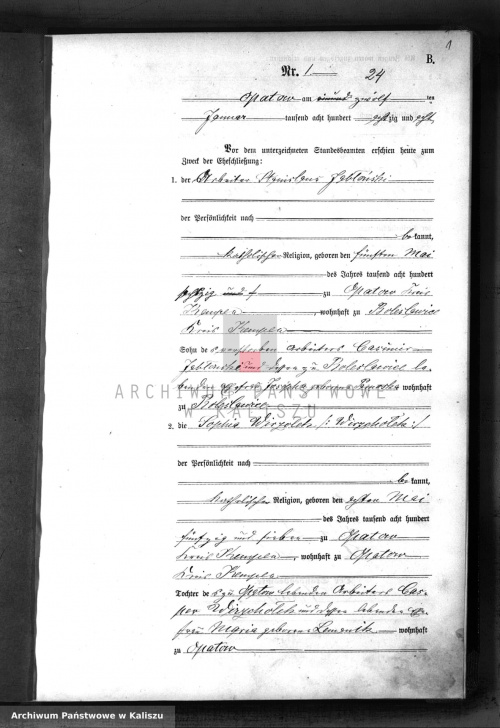 1
B.
Nr. 1
24
Opatow am zwölf ten
Januar tausend acht hundert achtzig und acht
Vor dem unterzeichneten Standesbeamten erschien heute zum
Zweck der Eheschließung:
1. der Arbeiter Stanislaus Jabłoński
der Persönlichkeit nach
bekannt,
katholischer Religion, geboren den fünften Mai
des Jahres tausend acht hundert
sechzig und zu Opatow Kreis
Kempen, wohnhaft zu Boleslawice
Kreis Kempen
Sohn des verstorbenen Arbeiters Casimir
Jabłonski und dessen zu Boleslawice le-
benden Ehefrau Josepha geborene wohnhaft
zu Boleslawice
2. die Sophia Wirzoleta /: Wirzcholek :/
der Persönlichkeit nach
bekannt,
katholischer Religion, geboren den achten Mai
des Jahres tausend acht hundert
fünfzig und sieben zu Opatow
Kreis Kempen, wohnhaft zu Opatow
Kreis Kempen
Tochter des zu Opatow lebenden Arbeiters Cas-
per Wirzcholek und dessen lebenden Ehe-
frau Maria geborene wohnhaft
zu Opatow
ARCHIWUM PAŃSTWOWE
W KALISZU
Archiwum Państwowe w Kaliszu